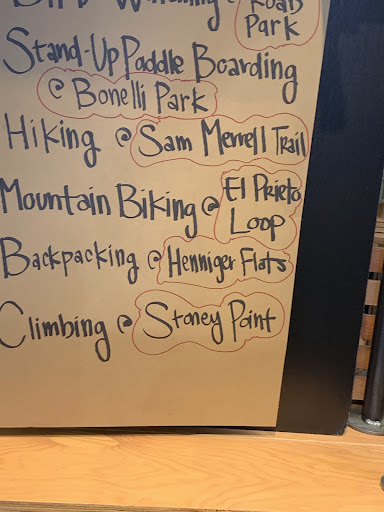 Park
Stand-Up Paddle Boarding
@ Bonelli Park
Hiking @ Sam Merrell Trail
Mountain Biking @ El Prieto
Loop
Backpacking @ Henniger Flats
Climbing @ Stoney Point